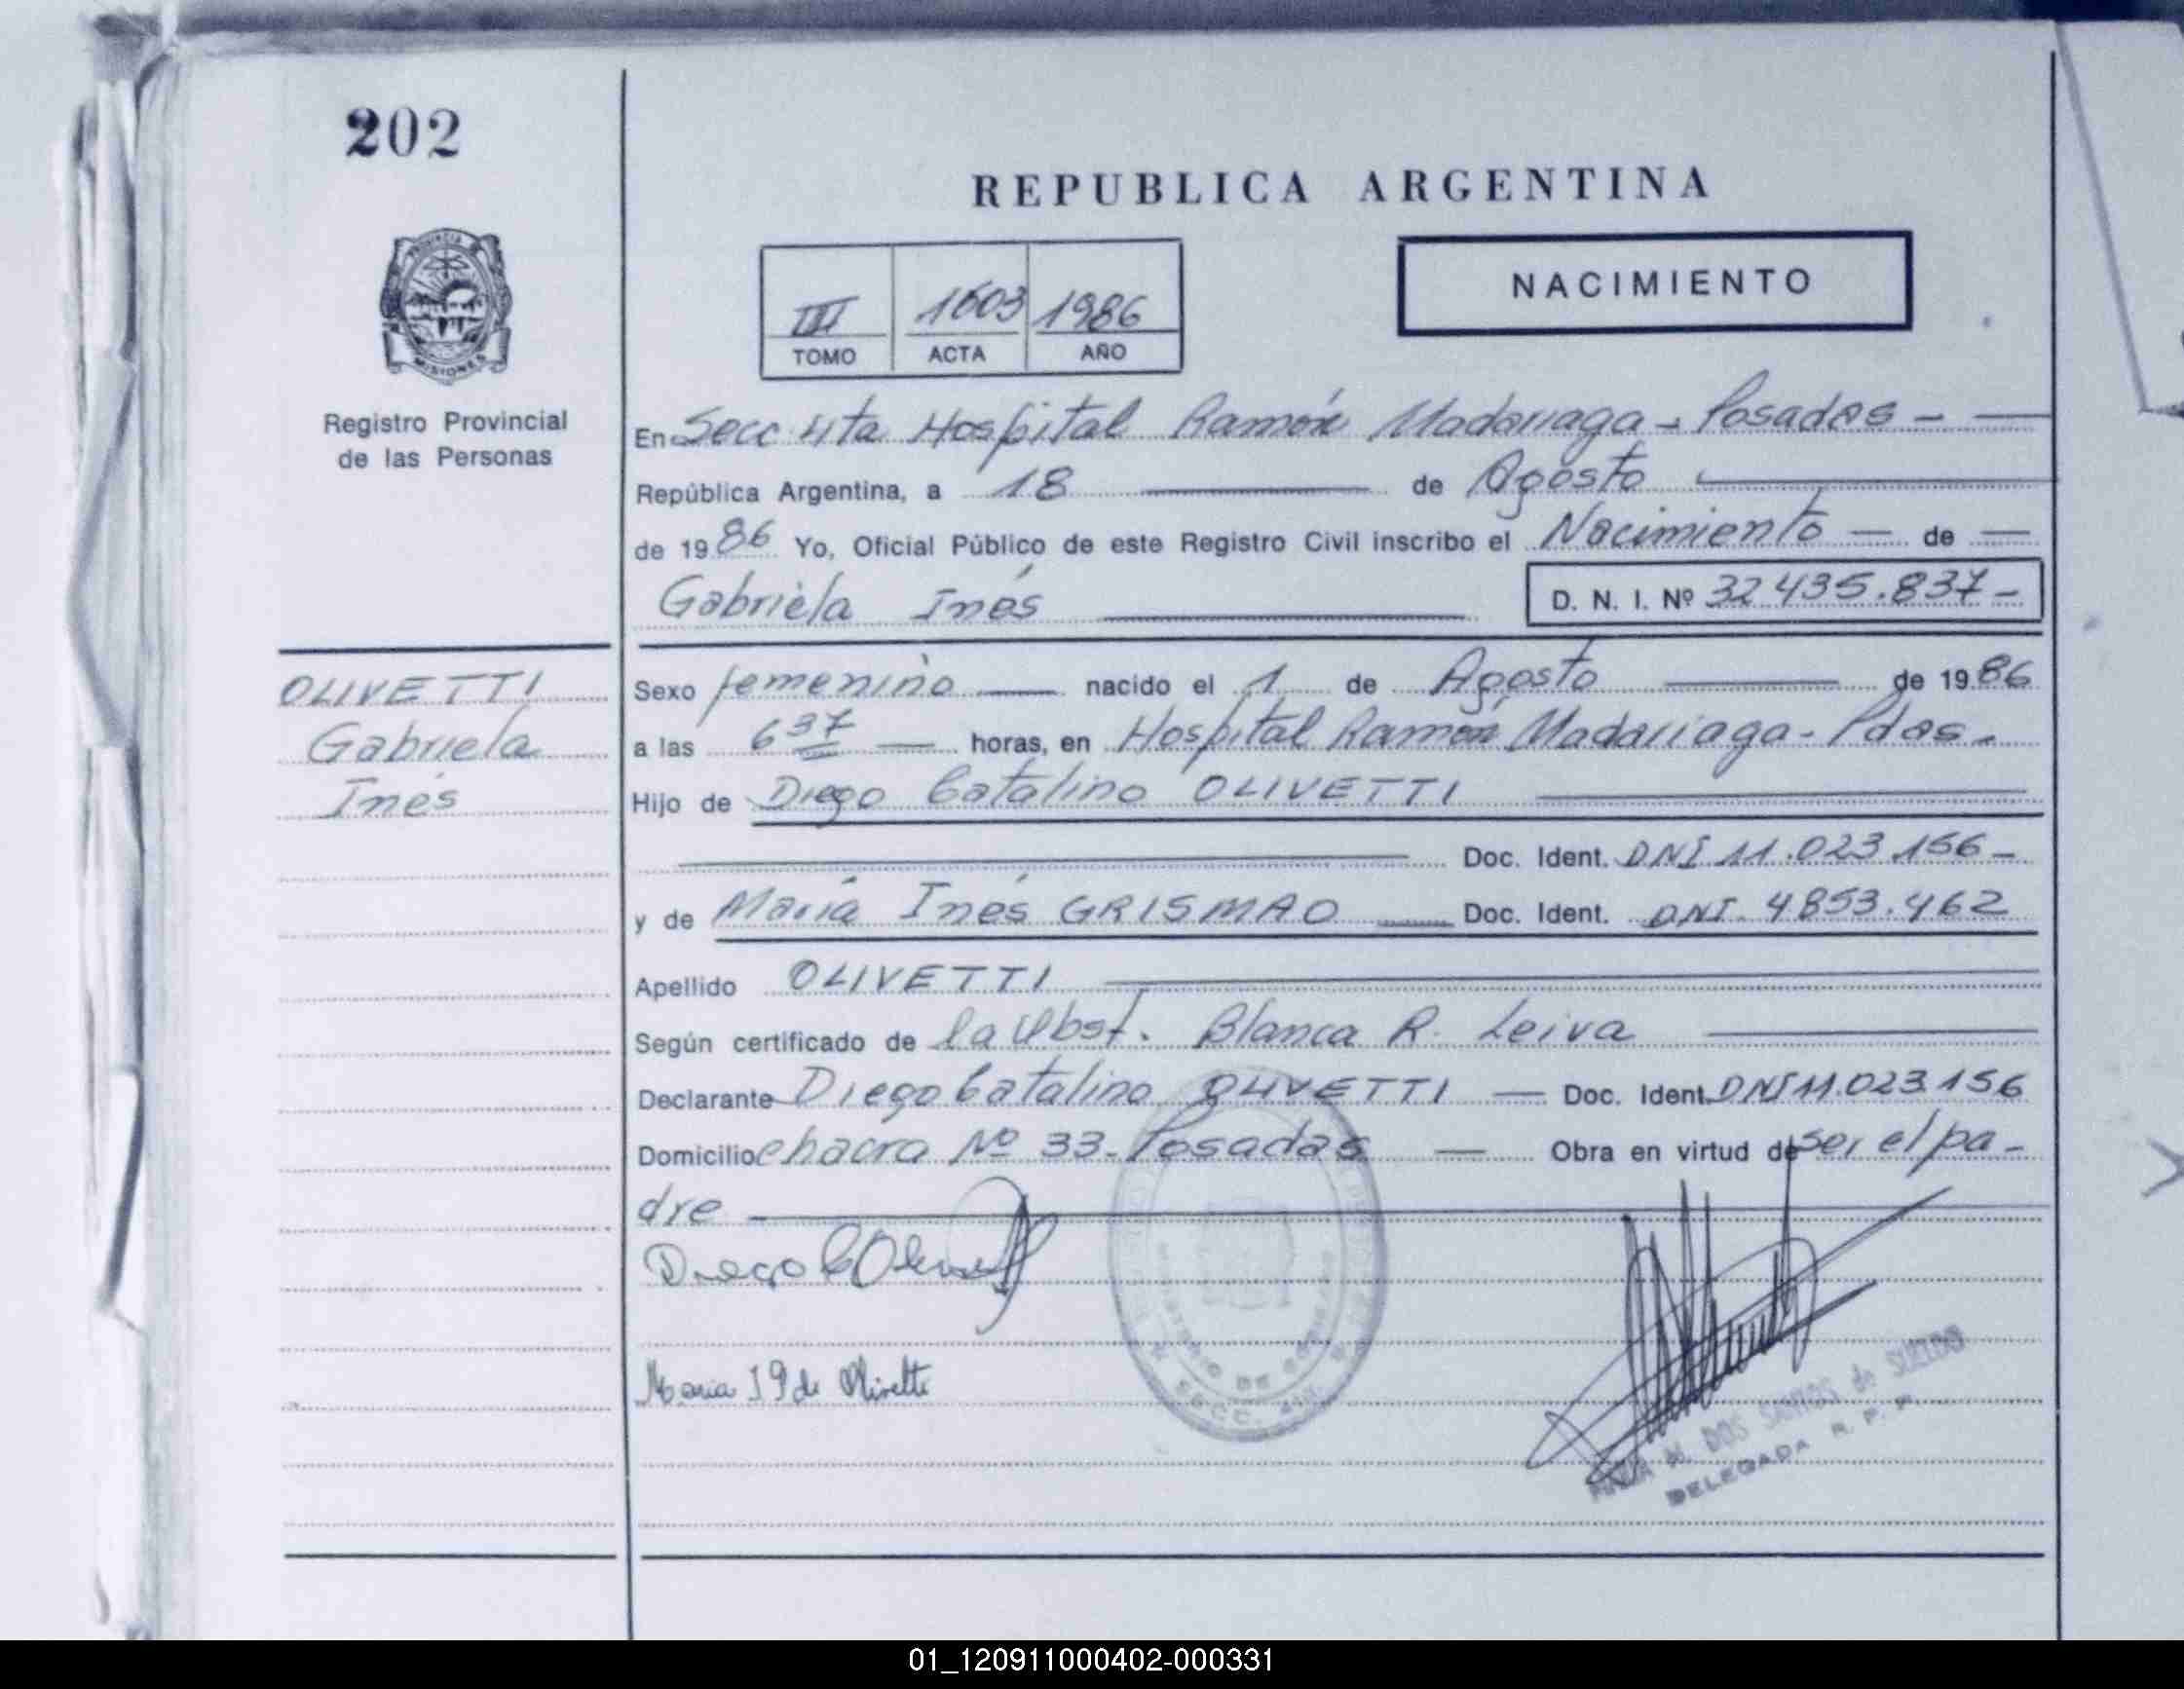 202
PROVINCIA DE
MISIONES
Registro Provincial
de las Personas
REPUBLICA ARGENTINA
III 1603 1986
TOMO ACTA AÑO
NACIMIENTO
En Secc 4ta Hospital Ramón Madariaga - Posadas -
República Argentina, a 18 de Agosto
de 1986 Yo, Oficial Público de este Registro Civil inscribo el Nacimiento de
Gabriela Inés D. N. I. Nº 32.435.837-
OLIVETTI
Gabriela
Inés
Sexo femenino nacido el 1 de Agosto de 1986
a las 6 37 horas, en Hospital Ramón Madariaga - Pdas -
Hijo de Diego Catalino OLIVETTI
Doc. Ident. DNI 11.023.156-
y de María Inés GRISMAO Doc. Ident. DNI. 4853.462
Apellido OLIVETTI
Según certificado de la Obst. Blanca R. Leiva
Declarante Diego Catalino OLIVETTI Doc. Ident. DNI 11.023.156
Domicilio chacra Nº 33 - Posadas Obra en virtud de ser el pa-
dre
Diego C
Maria I G de Olivetti
MINISTERIO DE GOBIERNO
SECC. 4ta.
M. DOS SANTOS de SUELDO
DELEGADA R. P. P.
01_120911000402-000331